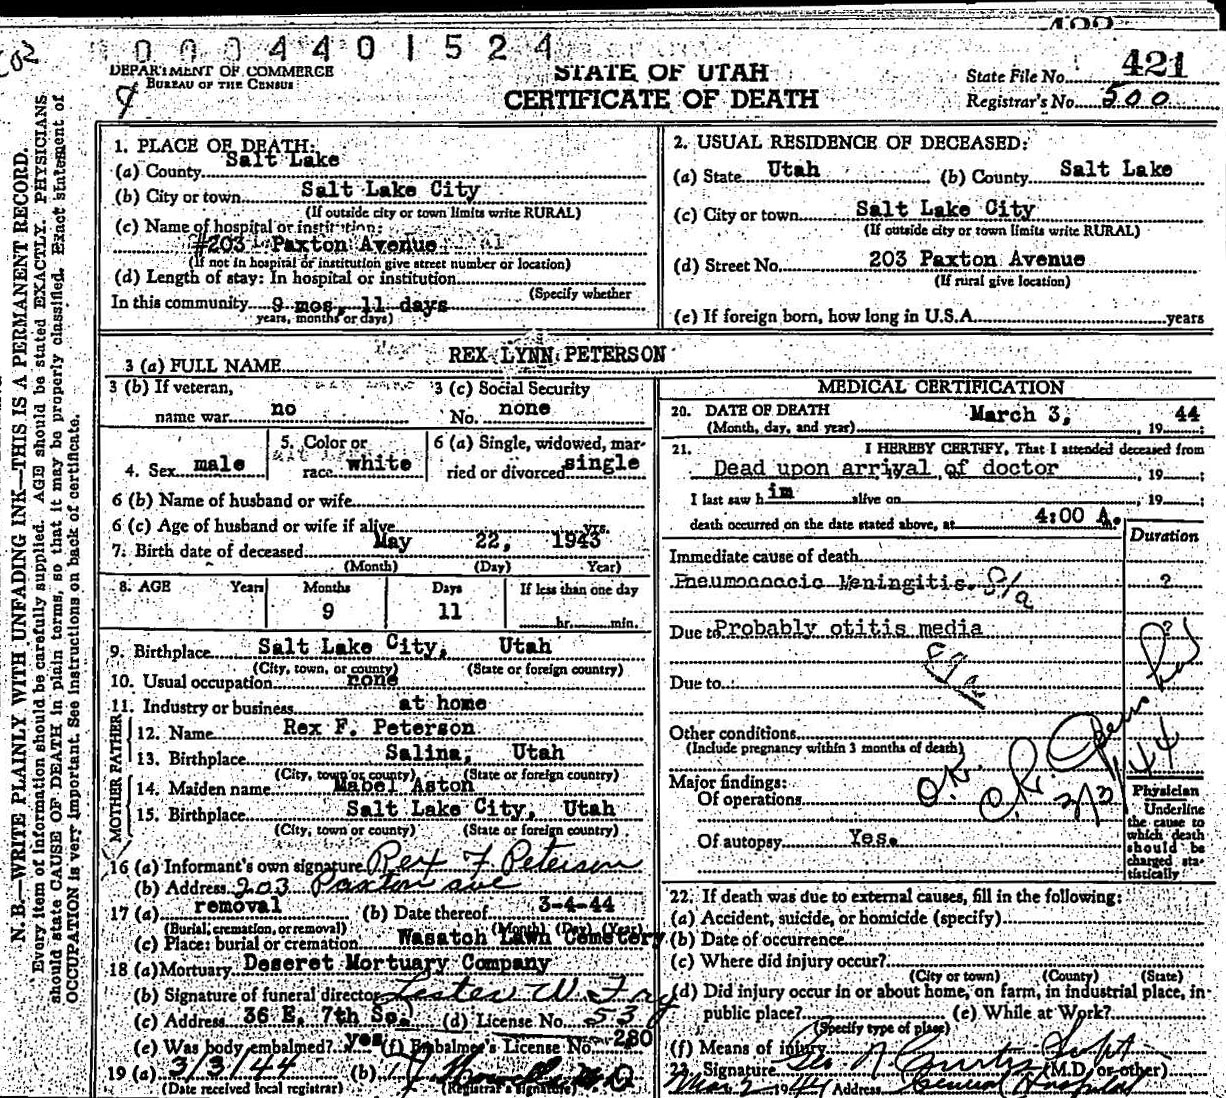 0004401524
DEPARTMENT OF COMMERCE
BUREAU OF THE CENSUS
STATE OF UTAH
CERTIFICATE OF DEATH
State File No. 421
Registrar's No. 500
N. B.—WRITE PLAINLY WITH UNFADING INK—THIS IS A PERMANENT RECORD.
Every item of information should be carefully supplied. AGE should be stated EXACTLY. PHYSICIANS
should state CAUSE OF DEATH in plain terms, so that it may be properly classified. Exact statement of
OCCUPATION is very important. See instructions on back of certificate.
1. PLACE OF DEATH:
(a) County Salt Lake
(b) City or town Salt Lake City
(If outside city or town limits write RURAL)
(c) Name of hospital or institution:
#203 Paxton Avenue
(If not in hospital or institution give street number or location)
(d) Length of stay: In hospital or institution
(Specify whether
In this community 9 mos, 11 days
years, months or days)
2. USUAL RESIDENCE OF DECEASED:
(a) State Utah (b) County Salt Lake
(c) City or town Salt Lake City
(If outside city or town limits write RURAL)
(d) Street No. 203 Paxton Avenue
(If rural give location)
(e) If foreign born, how long in U.S.A. years
3 (a) FULL NAME REX LYNN PETERSON
3 (b) If veteran,
name war no
3 (c) Social Security
No. none
4. Sex male
5. Color or
race white
6 (a) Single, widowed, mar-
ried or divorced single
6 (b) Name of husband or wife
6 (c) Age of husband or wife if alive yrs.
7. Birth date of deceased May 22, 1943
(Month) (Day) Year)
8. AGE Years Months Days If less than one day
9 11
hr. min.
9. Birthplace Salt Lake City, Utah
(City, town, or county) (State or foreign country)
10. Usual occupation none
11. Industry or business at home
FATHER
12. Name Rex F. Peterson
13. Birthplace Salina, Utah
(City, town or county) (State or foreign country)
MOTHER
14. Maiden name Mabel Aston
15. Birthplace Salt Lake City, Utah
(City, town or county) (State or foreign country)
16 (a) Informant's own signature Rex F Peterson
(b) Address 203 Paxton ave
17 (a) removal (b) Date thereof 3-4-44
(Burial, cremation, or removal) (Month) (Day) (Year)
(c) Place: burial or cremation Wasatch Lawn Cemetery
18 (a) Mortuary Deseret Mortuary Company
(b) Signature of funeral director Lester W. Fry
(c) Address 36 E. 7th So. (d) License No. 53
(e) Was body embalmed? yes (f) Embalmer's License No. 280
19 (a) 3/3/44 (b)
(Date received local registrar) (Registrar's signature)
MEDICAL CERTIFICATION
20. DATE OF DEATH March 3, 1944;
(Month, day, and year)
21. I HEREBY CERTIFY, That I attended deceased from
Dead upon arrival of doctor , 19 ;
I last saw him alive on , 19 ;
death occurred on the date stated above, at 4:00 A.
Duration
Immediate cause of death
Pneumococcic Meningitis. ?
Due to Probably otitis media ?
Due to
Other conditions
(Include pregnancy within 3 months of death)
O.K.
Major findings:
Of operations
Of autopsy Yes.
Physician
Underline
the cause to
which death
should be
charged sta-
tistically
22. If death was due to external causes, fill in the following:
(a) Accident, suicide, or homicide (specify)
(b) Date of occurrence
(c) Where did injury occur?
(City or town) (County) (State)
(d) Did injury occur in or about home, on farm, in industrial place, in-
public place? (e) While at Work?
(Specify type of place)
(f) Means of injury
23. Signature Geo N. Curtis Supt (M.D. or other)
Address General Hospital